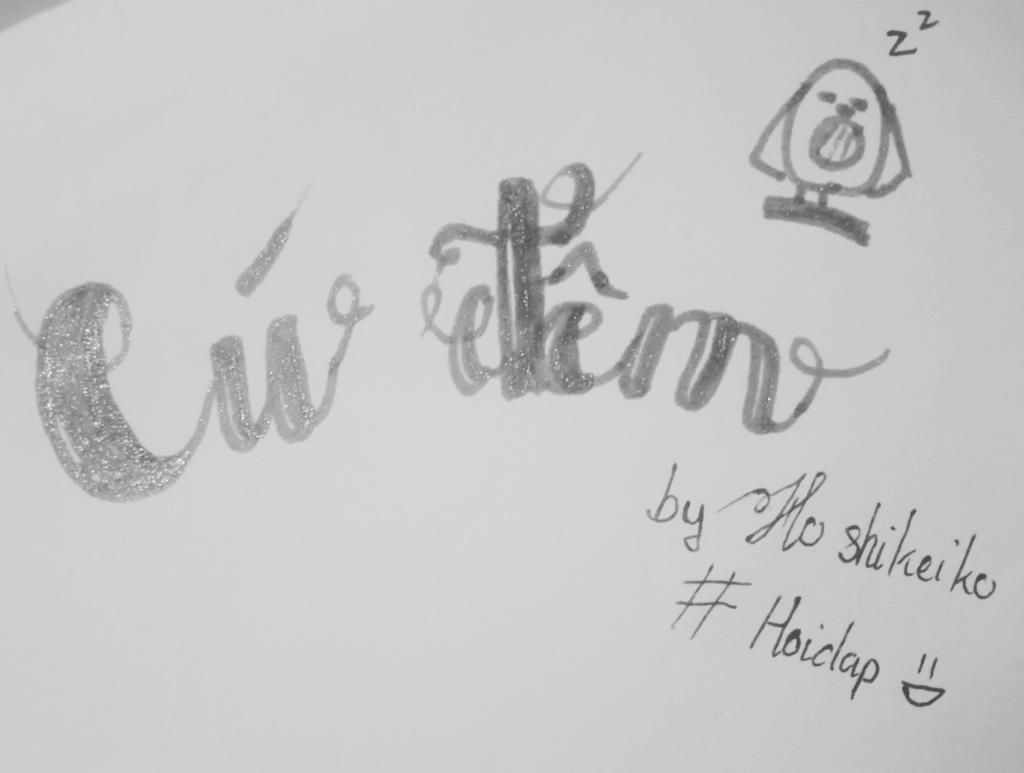 z z
Cú đêm
by Hoshikeiko
# Hoidap